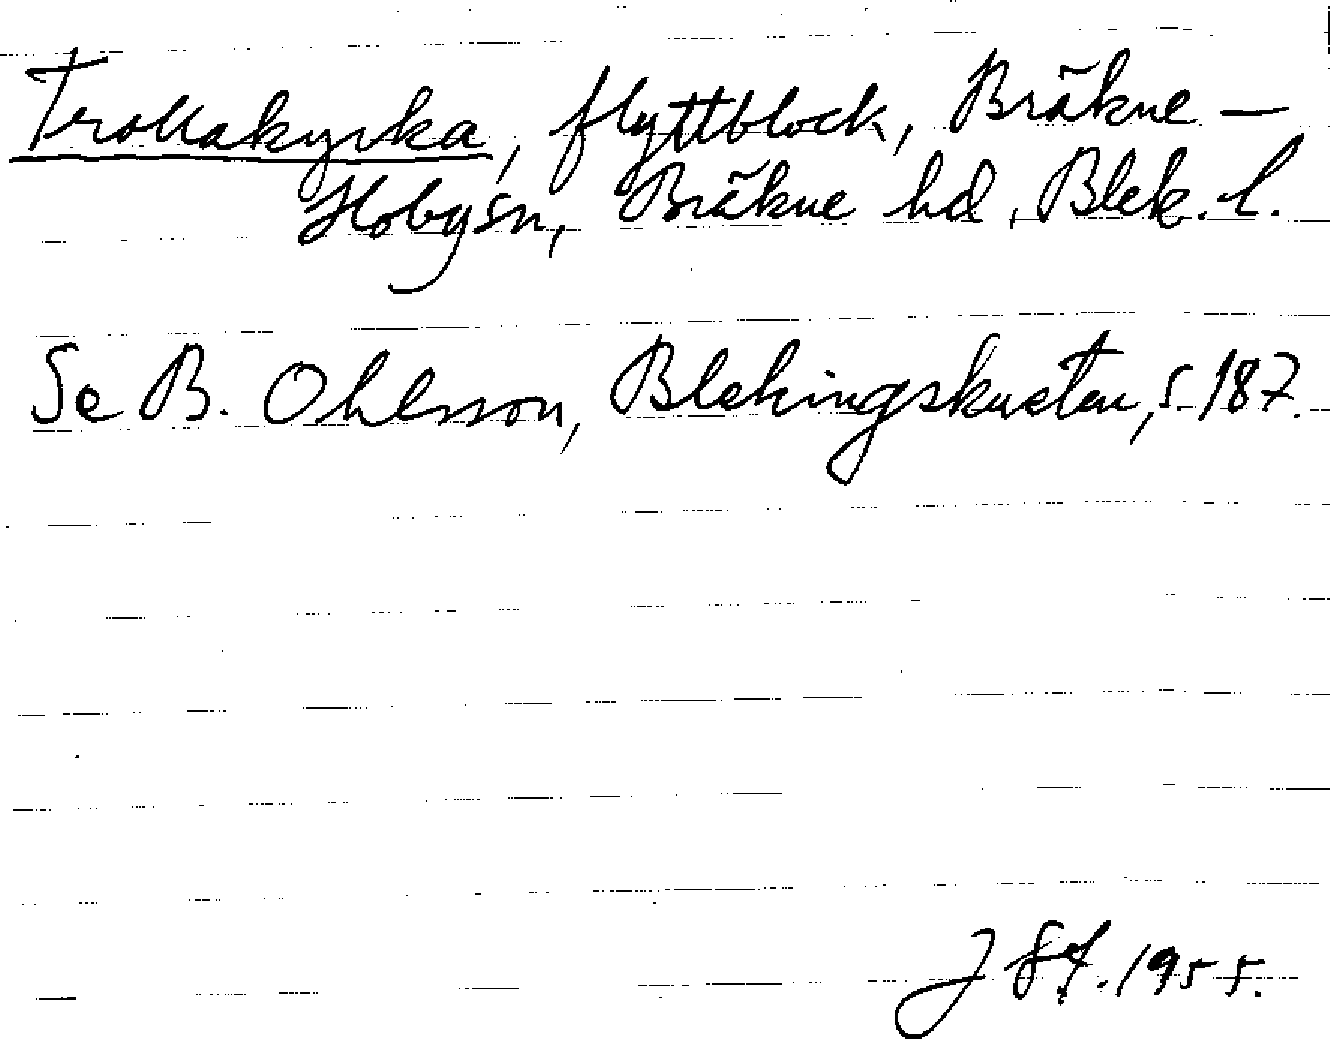 Trollakyrka, flyttblock, Bräkne-
Hoby sn, Bräkne hd, Blek. l.
Se B. Ohlsson, Blekingskusten, s. 187.
1955.